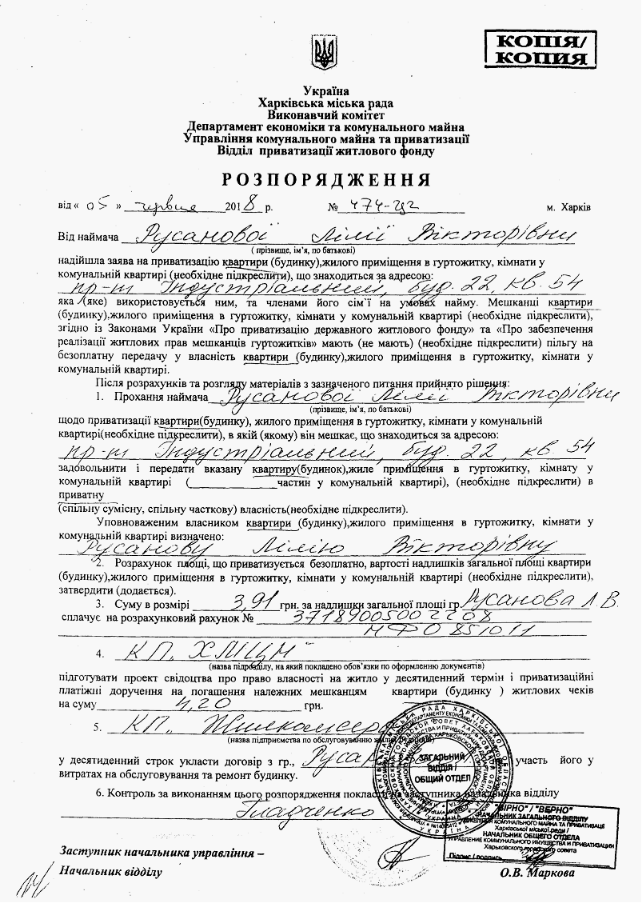 КОПІЯ/
КОПИЯ
Україна
Харківська міська рада
Виконавчий комітет
Департамент економіки та комунального майна
Управління комунального майна та приватизації
Відділ приватизації житлового фонду
РОЗПОРЯДЖЕННЯ
від « 05 » червня 2018 р. № 474-Ц2 м. Харків
Від наймача Русанової Лілії Вікторівни
( прізвище, ім'я, по батькові)
надійшла заява на приватизацію квартири (будинку),жилого приміщення в гуртожитку, кімнати у
комунальній квартирі (необхідне підкреслити), що знаходиться за адресою:
пр-т Індустріальний, буд. 22, кв. 54
яка (яке) використовується ним, та членами його сім'ї на умовах найму. Мешканці квартири
(будинку),жилого приміщення в гуртожитку, кімнати у комунальній квартирі (необхідне підкреслити),
згідно із Законами України «Про приватизацію державного житлового фонду» та «Про забезпечення
реалізації житлових прав мешканців гуртожитків» мають (не мають) (необхідне підкреслити) пільгу на
безоплатну передачу у власність квартири (будинку),жилого приміщення в гуртожитку, кімнати у
комунальній квартирі.
Після розрахунків та розгляду матеріалів з зазначеного питання прийнято рішення:
1. Прохання наймача Русанової Лілії Вікторівни
(прізвище, ім'я, по батькові)
щодо приватизації квартири(будинку), жилого приміщення в гуртожитку, кімнати у комунальній
квартирі(необхідне підкреслити), в якій (якому) він мешкає, що знаходиться за адресою:
пр-т Індустріальний, буд. 22, кв 54
задовольнити і передати вказану квартиру(будинок),жиле приміщення в гуртожитку, кімнату у
комунальній квартирі (____________частин у комунальній квартирі), (необхідне підкреслити) в
приватну
(спільну сумісну, спільну часткову) власність(необхідне підкреслити).
Уповноваженим власником квартири (будинку),жилого приміщення в гуртожитку, кімнати у
комунальній квартирі визначено:
Русанову Лілію Вікторівну
2. Розрахунок площі, що приватизується безоплатно, вартості надлишків загальної площі квартири
(будинку),жилого приміщення в гуртожитку, кімнати у комунальній квартирі (необхідне підкреслити),
затвердити (додається).
3. Суму в розмірі 3,91 грн. за надлишки загальної площі гр. Русанова Л В.
сплачує на розрахунковий рахунок № 37189005002208
МФО 851011
4. КП "ХМЦМ"
(назва підрозділу, на який покладено обов'язки по оформленню документів)
підготувати проект свідоцтва про право власності на житло у десятиденний термін і приватизаційні
платіжні доручення на погашення належних мешканцям квартири (будинку ) житлових чеків
на суму 4,20 грн.
5. КП "Жилкомсервіс
(назва підприємства по обслуговуванню
у десятиденний строк укласти договір з гр., Русан участь його у
витратах на обслуговування та ремонт будинку.
6. Контроль за виконанням цього розпорядження покласти на заступника начальника відділу
Гладченко
ЗАГАЛЬНИЙ
ВІДДІЛ /
ОБЩИЙ ОТДЕЛ
"ВІРНО" / "ВЕРНО"
НАЧАЛЬНИК ЗАГАЛЬНОГО ВІДДІЛУ
УПРАВЛІННЯ КОМУНАЛЬНОГО МАЙНА ТА ПРИВАТИЗАЦІЇ
Харківської міської ради /
НАЧАЛЬНИК ОБЩЕГО ОТДЕЛА
УПРАВЛЕНИЕ КОММУНАЛЬНОГО ИМУЩЕСТВА И ПРИВАТИЗАЦИИ
Харьковского городского совета
Підпис / подпись
Заступник начальника управління –
Начальник відділу О.В. Маркова